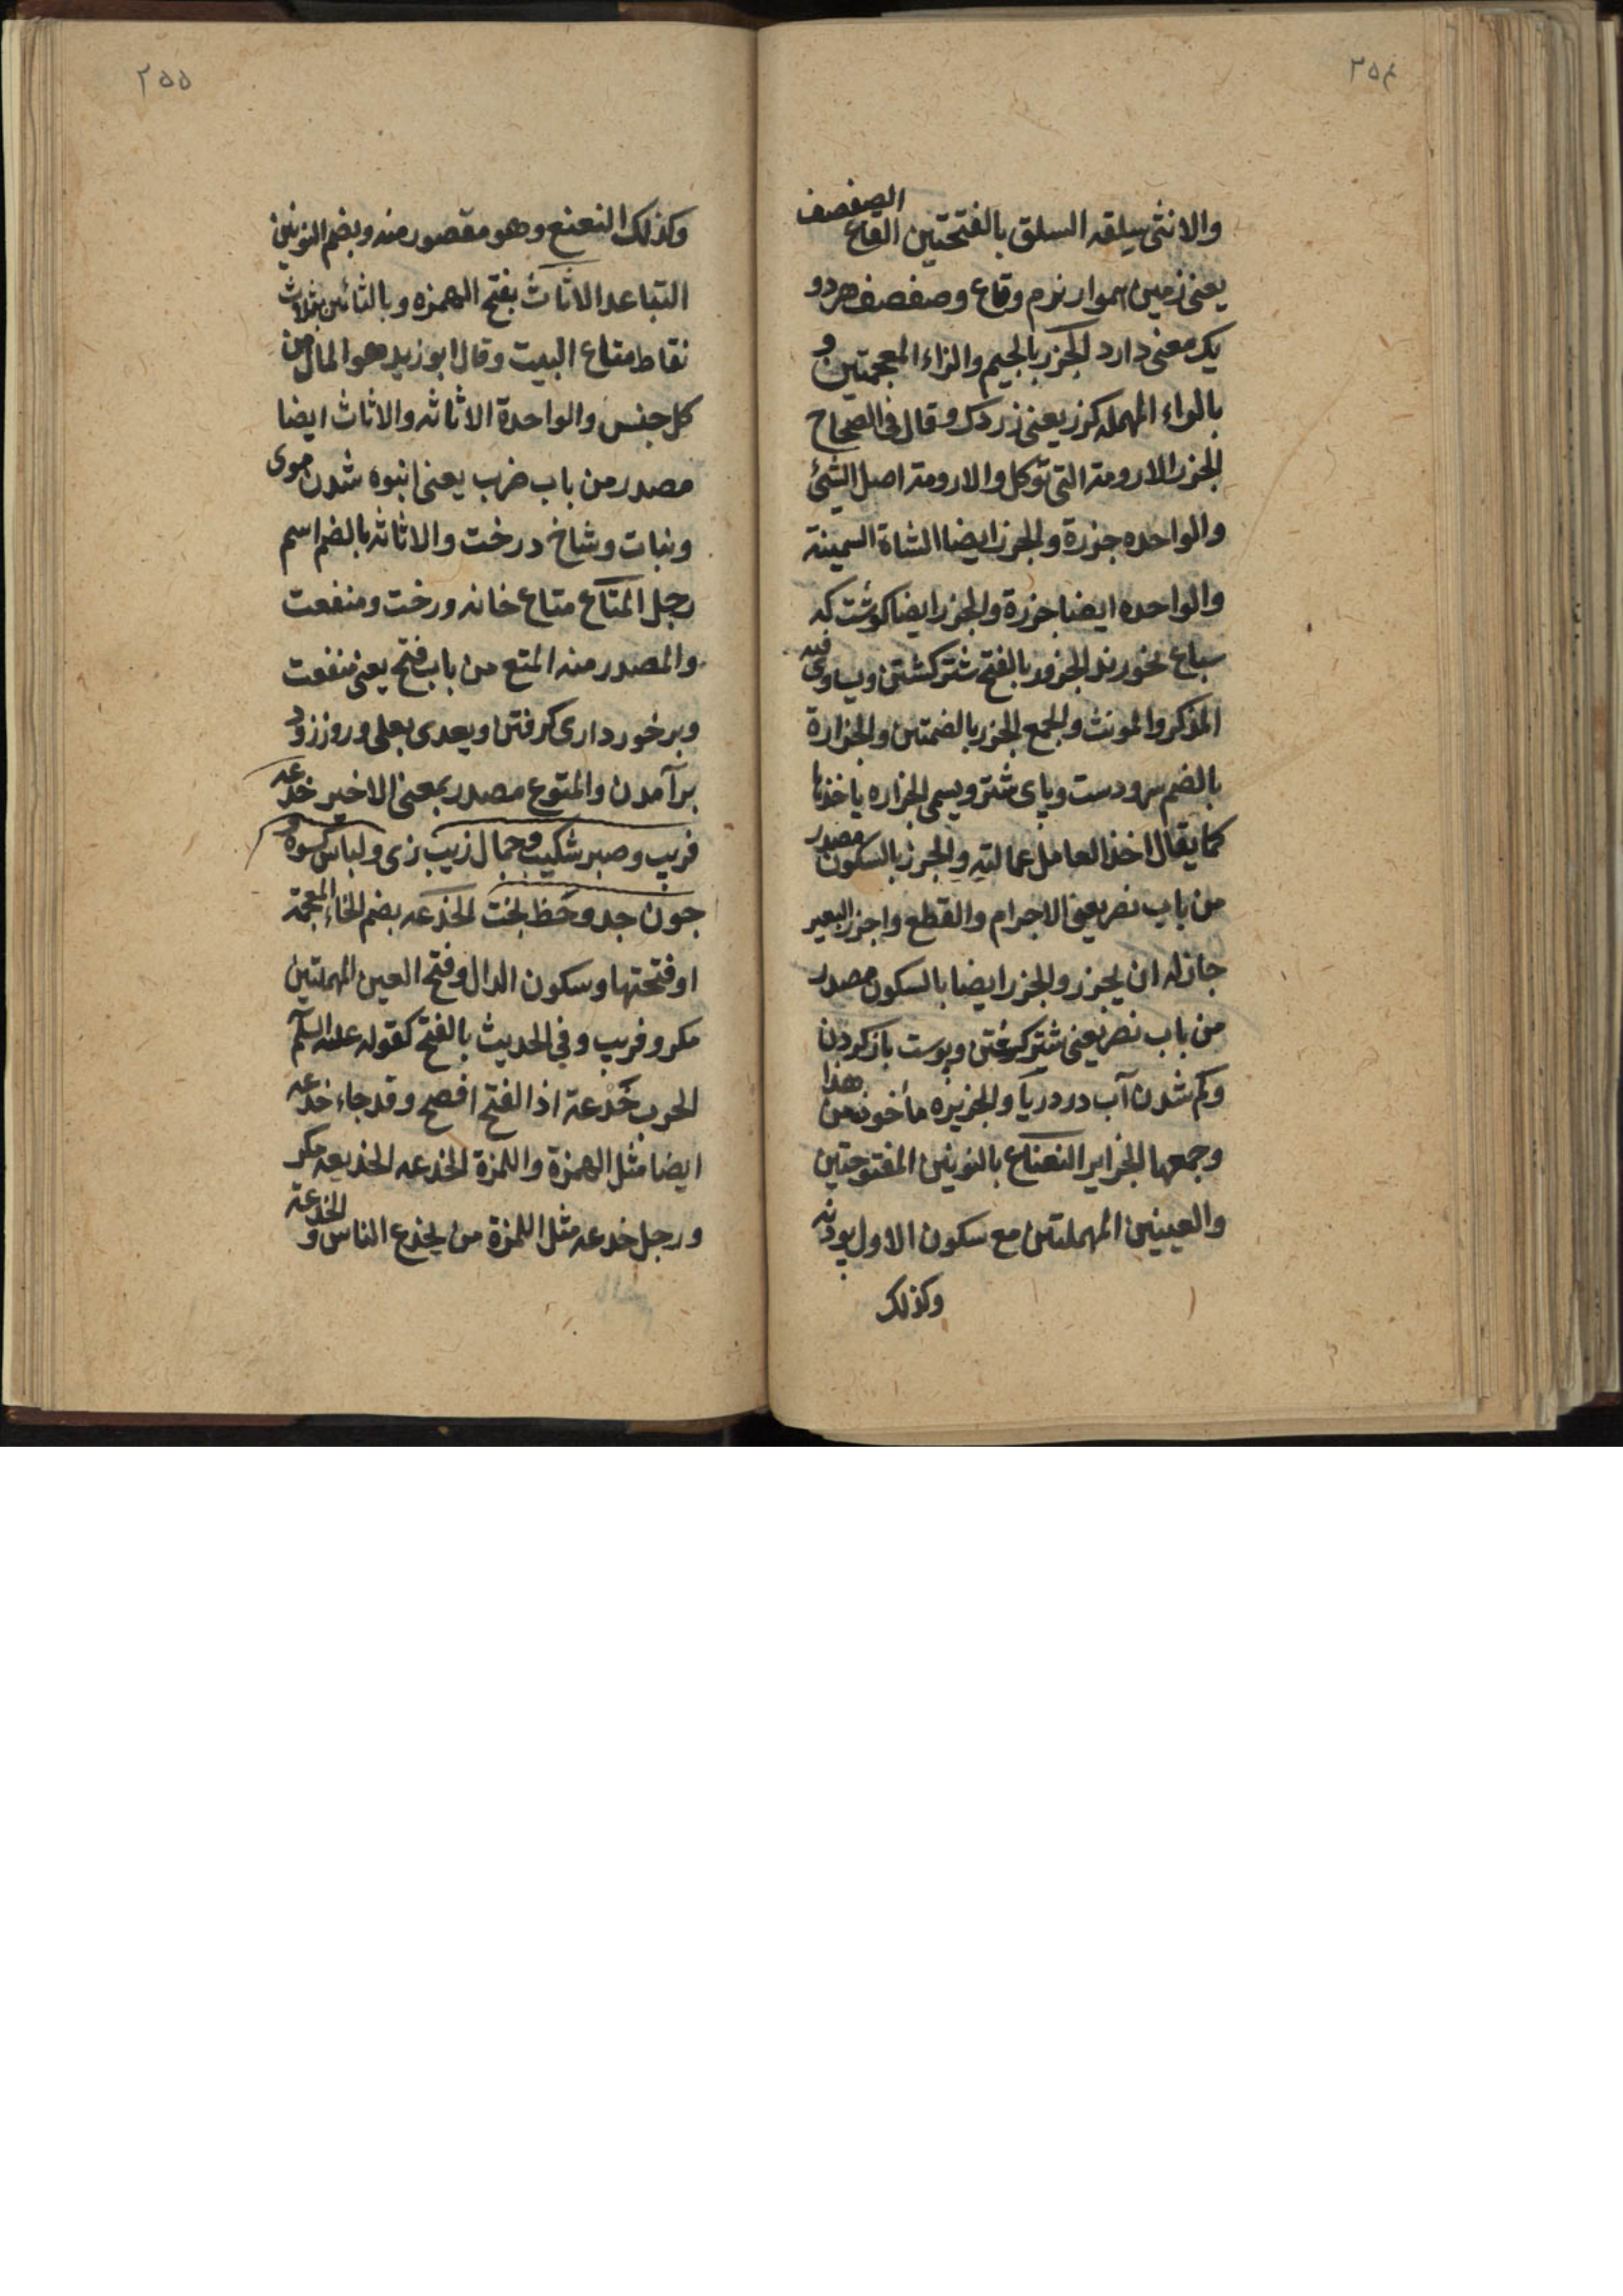 ۲۵۴
والانثی سلقه السلق بالفتحتین القاع الصفصف
یعنی زمین هموار نرم وقاع وصفصف هر دو
یک معنی دارد الجزر بالجیم والزاء المعجمتین و
بالراء المهمله کزر یعنی زردک وقال فی الصحاح
الجزر الارومة التی توکل والارومة اصل الشئ
والواحده جزرة والجزر ایضا الشاة السمینة
والواحده ایضا جزرة والجزر ایضا کوشت که
سباع بخورند الجزور بالفتح شتر کشتنی ویساوی فیه
المذکر والمونث والجمع الجزر بالضمتین والجزارة
بالضم سر ودست وپای شتر ویسمی الجزاره یاخذها
کما یقال اخذ العامل عمالته والجزر بالسکون مصدر
من باب نصر یعنی الاجرام والقطع واجزر البعیر
جاز له ان یجزر والجزر ایضا بالسکون مصدر
من باب نصر یعنی شتر کشتن وپوست باز کردن
وکم شدن آب در دریا والجزیره مأخوذ من هذا
وجمعها الجزایر النعناع بالنونین المفتوحتین
والعینین المهملتین مع سکون الاول پودنه
وکذلک
۲۵۵
وکذلک النعنع وهو مقصور منه وبضم النونین
التباعد الاثاث بفتح الهمزه وبالثائین بثلاث
نقاط متاع البیت وقال ابو زید هو المال من
کل جنس والواحدة الاثاثه والاثاث ایضا
مصدر من باب ضرب یعنی انبوه شدن موی
ونبات وشاخ درخت والاثاثه بالضم اسم
رجل المتاع متاع خانه ورخت ومنفعت
والمصدر منه المتع من باب فتح یعنی منفعت
وبرخورداری کرفتن ویعدی بعلی وروز زود
برآمدن والمتوع مصدر بمعنی الاخیر خدعه
فریب وصبر شکیب وجمال زیب زی ولباس کسوه
جون جد وحظ بخت الخدعه بضم الخاء المعجمة
او فتحتها وسکون الدال وفتح العین المهملتین
مکر وفریب وفی الحدیث بالفتح کقوله علیه السلم
الحرب خَدْعة اذ الفتح افصح وقد جاء خدعه
ایضا مثل الهمزة واللمزة الخدعه الخدیعه مکر
ورجل خدعه مثل اللمزة من یخدع الناس و الخدعة